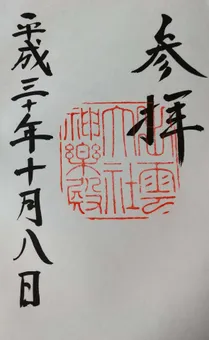 参拝
出雲
大社
神樂殿
平成三十年十月八日